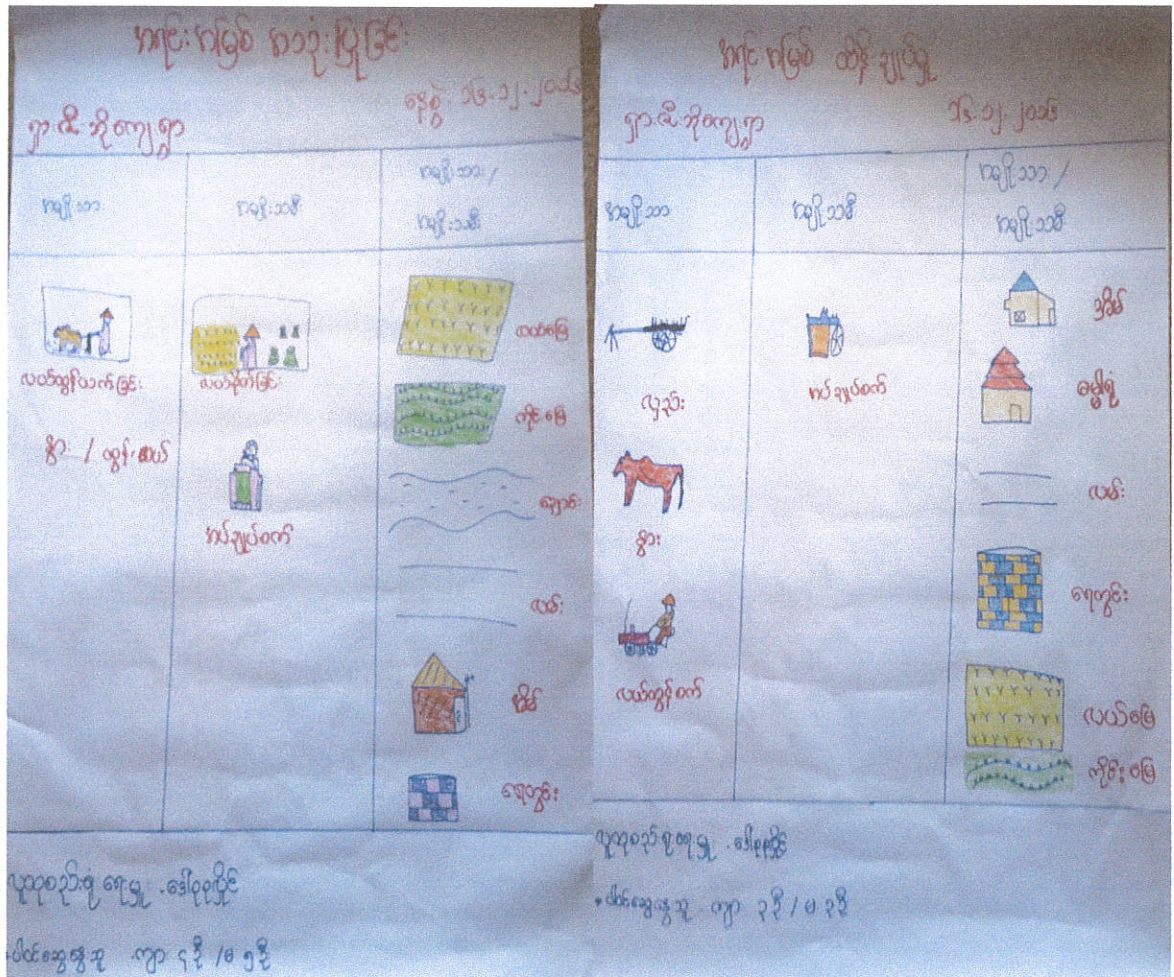 အရင်းအမြစ် အသုံးပြုခြင်း
နေ့စွဲ. ၁၆.၁၂.၂၀၁၆
ရှားဇီးဘိုကျေးရွာ
အမျိုးသား
အမျိုးသမီး
အမျိုးသား /
အမျိုးသမီး
လယ်ထွန်ယက်ခြင်း
နွား / ထွန်းစယ်
လယ်စိုက်ခြင်း
အပ်ချုပ်စက်
လယ်မြေ
ကိုင်းမြေ
ချောင်း
လမ်း
အိမ်
ရေတွင်း
လူထုစည်းရုံးရေးမှူး . ဒေါ်စုစုလှိုင်
ပါဝင်ဆွေးနွေးသူ ကျား ၄ဦး / မ ၅ဦး
အရင်းအမြစ် ထိန်းချုပ်မှု
ရှားဇီးဘိုကျေးရွာ
၁၆.၁၂.၂၀၁၆
အမျိုးသား
အမျိုးသမီး
အမျိုးသား /
အမျိုးသမီး
လှည်း
နွား
လယ်ထွန်စက်
အပ်ချုပ်စက်
အိမ်
ဓမ္မာရုံ
လမ်း
ရေတွင်း
လယ်မြေ
ကိုင်းမြေ
လူထုစည်းရုံးရေးမှူ . ဒေါ်စုစုလှိုင်
ပါဝင်ဆွေးနွေးသူ ကျား ၃ဦး / မ ၃ဦး